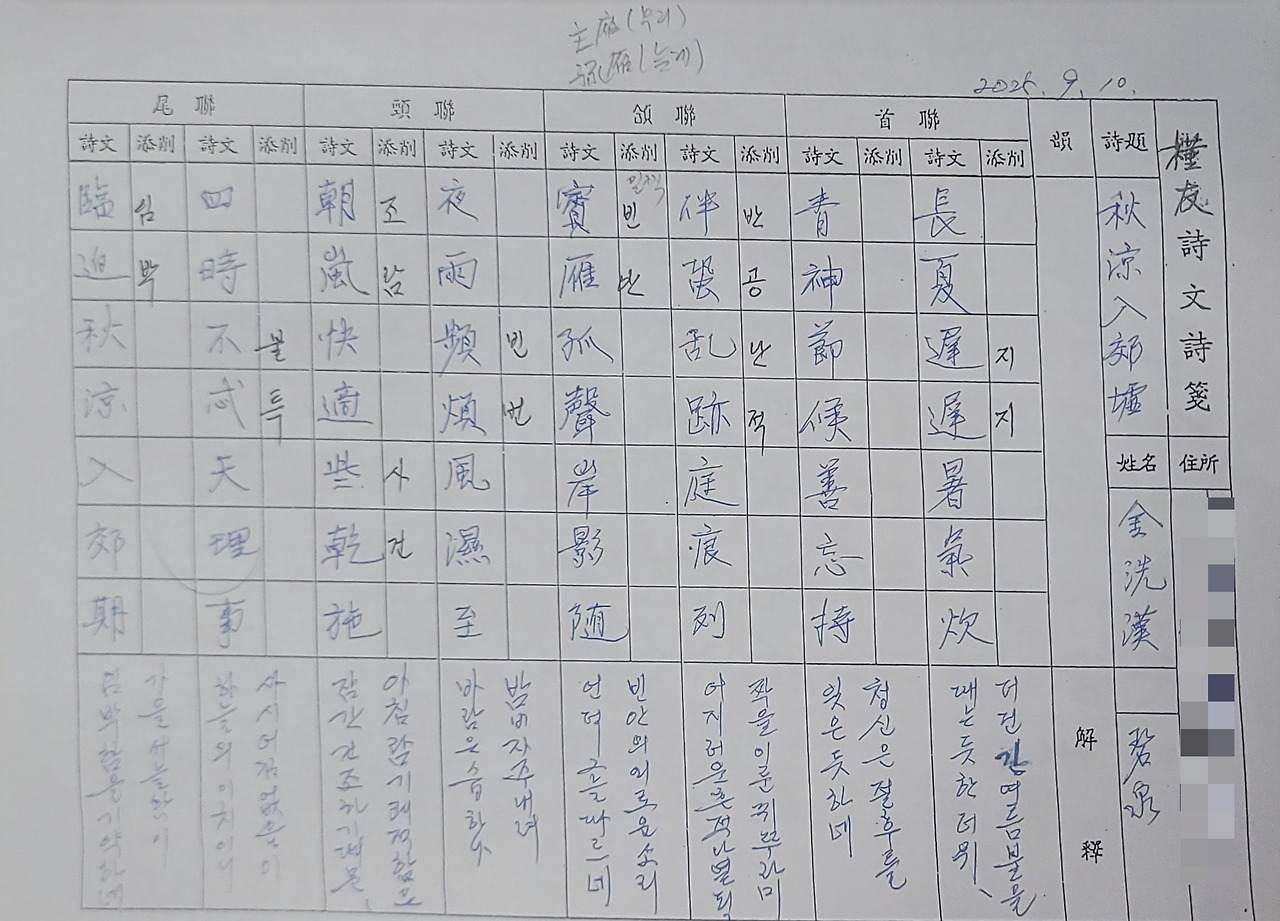 主雁(무리)
孤雁(늘게)
2025. 9. 10.
槿友詩文詩箋
住所
詩題
秋涼入郊墟
姓名
金洸漢
碧泉
韻
解釋
首聯
詩文 添削
長夏遲遲暑氣炊
지지
더딘 긴 여름 불을
때는 듯한 더위、
詩文 添削
青神節候善忘持
청신은 절후를
잊은 듯하네
頷聯
詩文 添削
伴蛩乱跡庭痕列
반공난적
짝을 이룬 귀뚜라미
어지러운 흔적 나열되
詩文 添削
賓雁孤聲岸影随
빈안
빈안의 외로운 소리
언덕 그늘 따르네
頭聯
詩文 添削
夜雨頻煩風濕至
빈번
밤비 자주 내려
바람은 습하나
詩文 添削
朝嵐快適些乾施
조람사건
아침 람기 쾌적함은
잠간 건조하기 때문、
尾聯
詩文 添削
四時不忒天理事
불특
사시 어김없음이
하늘의 이치이니
詩文 添削
臨迫秋涼入郊期
심박
가을 서늘함이
임박함을 기약하네